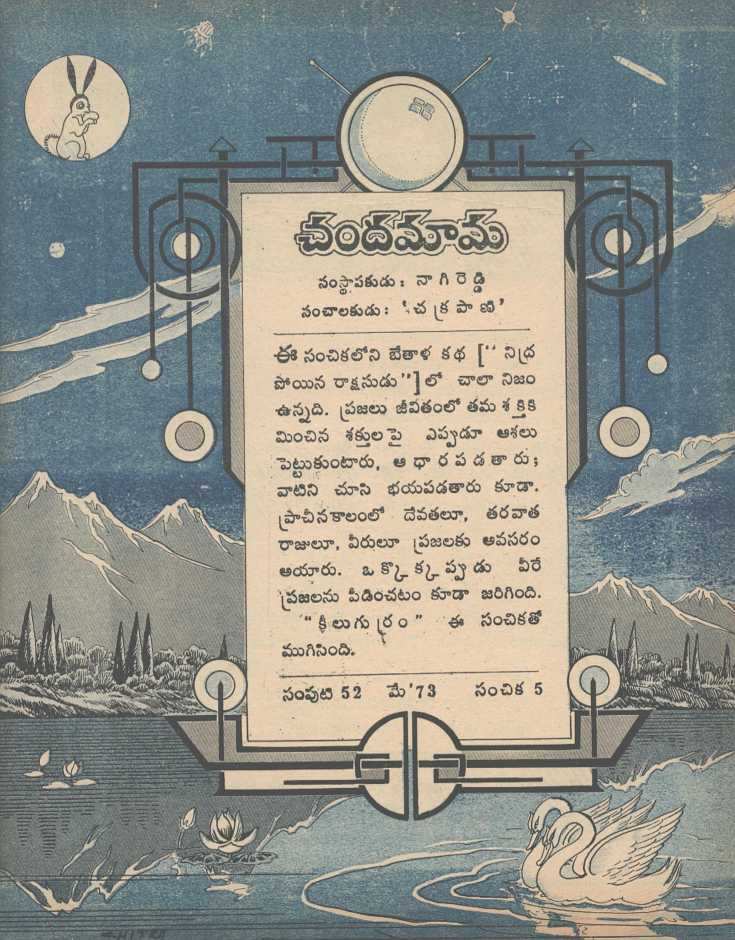 చందమామ
సంస్థాపకుడు : నా గి రె డ్డి
సంచాలకుడు : 'చ క్ర పా ణి'
ఈ సంచికలోని బేతాళ కథ ["నిద్ర
పోయిన రాక్షసుడు"] లో చాలా నిజం
ఉన్నది. ప్రజలు జీవితంలో తమ శక్తికి
మించిన శక్తులపై ఎప్పుడూ ఆశలు
పెట్టుకుంటారు, ఆ ధా ర ప డ తా రు;
వాటిని చూసి భయపడతారు కూడా.
ప్రాచీనకాలంలో దేవతలూ, తరవాత
రాజులూ, వీరులూ ప్రజలకు అవసరం
అయారు. ఒ క్కొ క్క ప్పు డు వీరే
ప్రజలను పీడించటం కూడా జరిగింది.
"కీ లు గు ర్రం" ఈ సంచికతో
ముగిసింది.
సంపుటి 52 మే '73 సంచిక 5